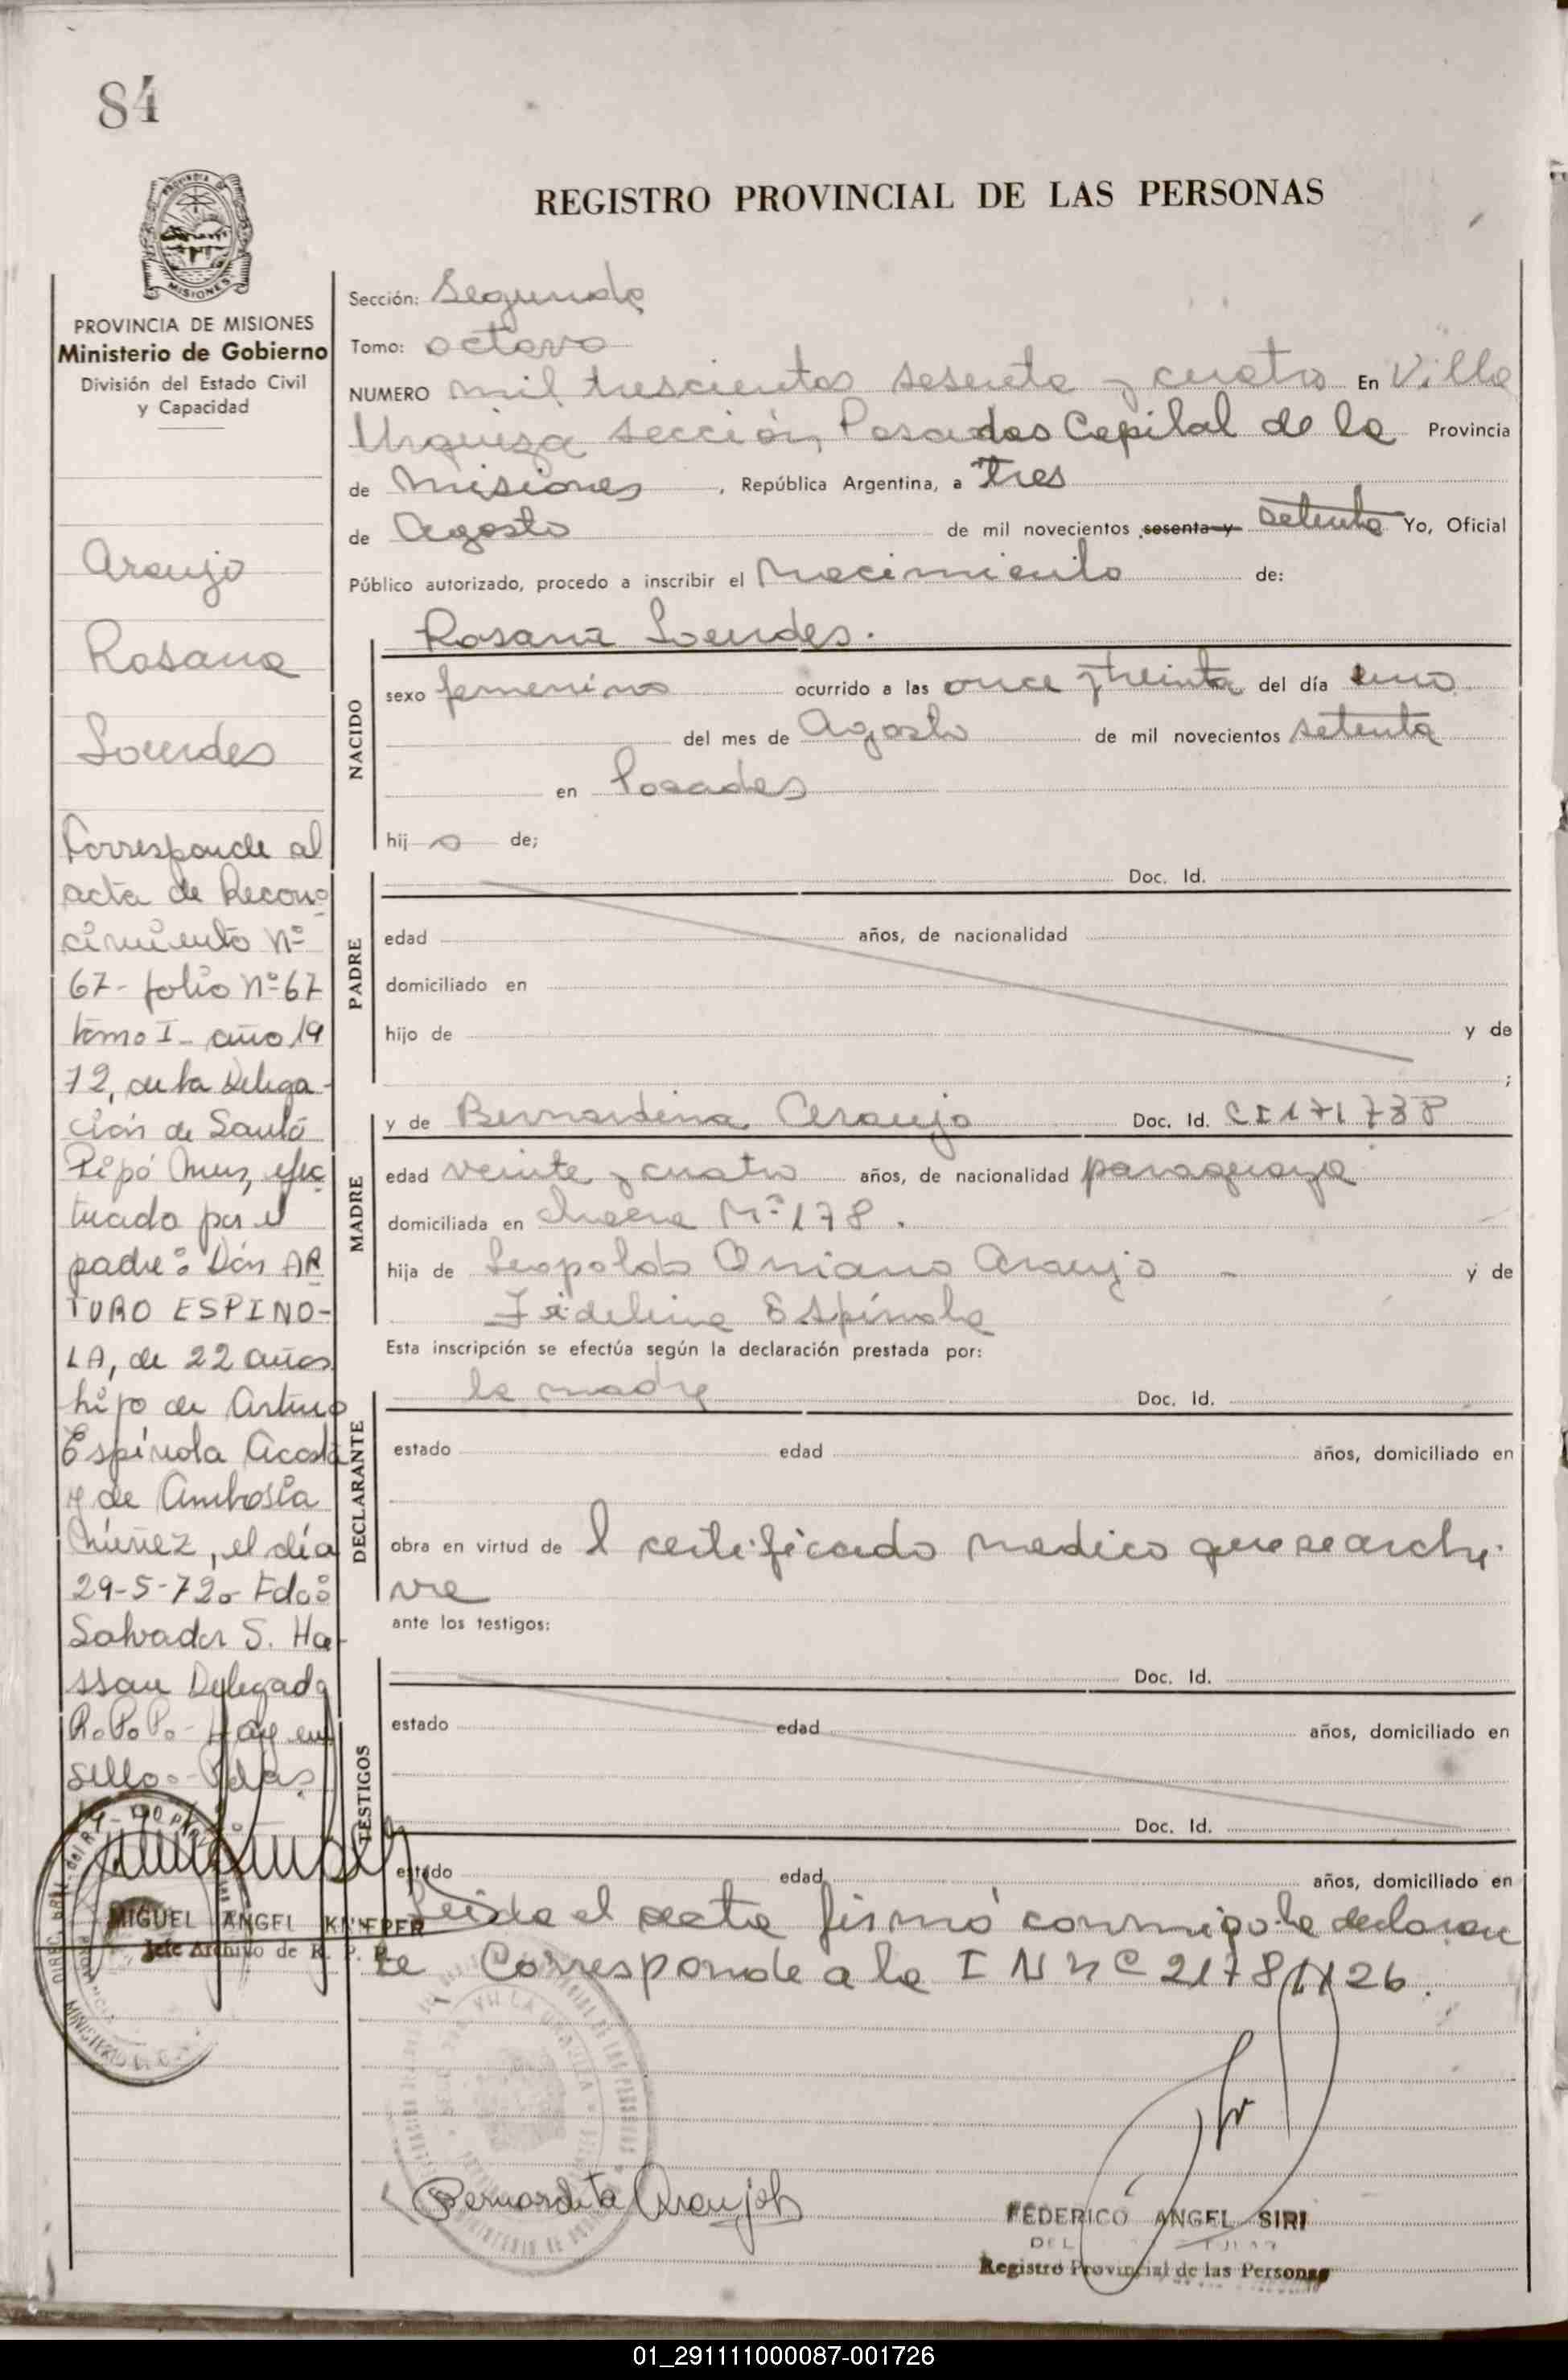 84
REGISTRO PROVINCIAL DE LAS PERSONAS
MISIONES
PROVINCIA DE MISIONES
Ministerio de Gobierno
División del Estado Civil
y Capacidad
Araujo
Rosana
Lourdes
Corresponde al
acta de Recono
cimiento Nº
67- folio Nº 67
tomo I- año 19
72, de la Delega-
ción de Santo
Pipó Mnes, efec
tuado por el
padre: Don AR
TURO ESPINO-
LA, de 22 años
hijo de Arturo
Espínola Acosta
y de Ambrosia
Núñez, el día
29-5-72. Fdo:
Salvador S. Ha-
ssan Delegado
R.P.P. Hay un
sello.- Pdas.
MIGUEL ANGEL
Jefe Archivo de R. P. P.
Sección: Segunda
Tomo: octavo
NUMERO mil trescientos sesenta y cuatro En Villa
Urquiza sección, Posadas Capital de la Provincia
de Misiones, República Argentina, a tres
de Agosto de mil novecientos sesenta y setenta Yo, Oficial
Público autorizado, procedo a inscribir el Nacimiento de:
NACIDO
Rosana Lourdes.
sexo femenino ocurrido a las once y treinta del día uno
del mes de Agosto de mil novecientos setenta
en Posadas
hij a de;
PADRE
Doc. Id.
edad años, de nacionalidad
domiciliado en
hijo de y de
;
MADRE
y de Bernardina Araujo Doc. Id. CI 171738
edad veinte y cuatro años, de nacionalidad paraguaya
domiciliada en chacra Nº 178.
hija de Leopoldo Oniano Araujo - y de
Fidelina Espínola
Esta inscripción se efectúa según la declaración prestada por:
DECLARANTE
la madre Doc. Id.
estado edad años, domiciliado en
obra en virtud de l certificado medico que se archi-
va
ante los testigos:
TESTIGOS
Doc. Id.
estado edad años, domiciliado en
Doc. Id.
estado edad años, domiciliado en
Leida el acta firmó conmigo la declaran
te Corresponde a la
Bernardita Araujo
FEDERICO ANGEL SIRI
Registro Provincial de las Personas
01_291111000087-001726